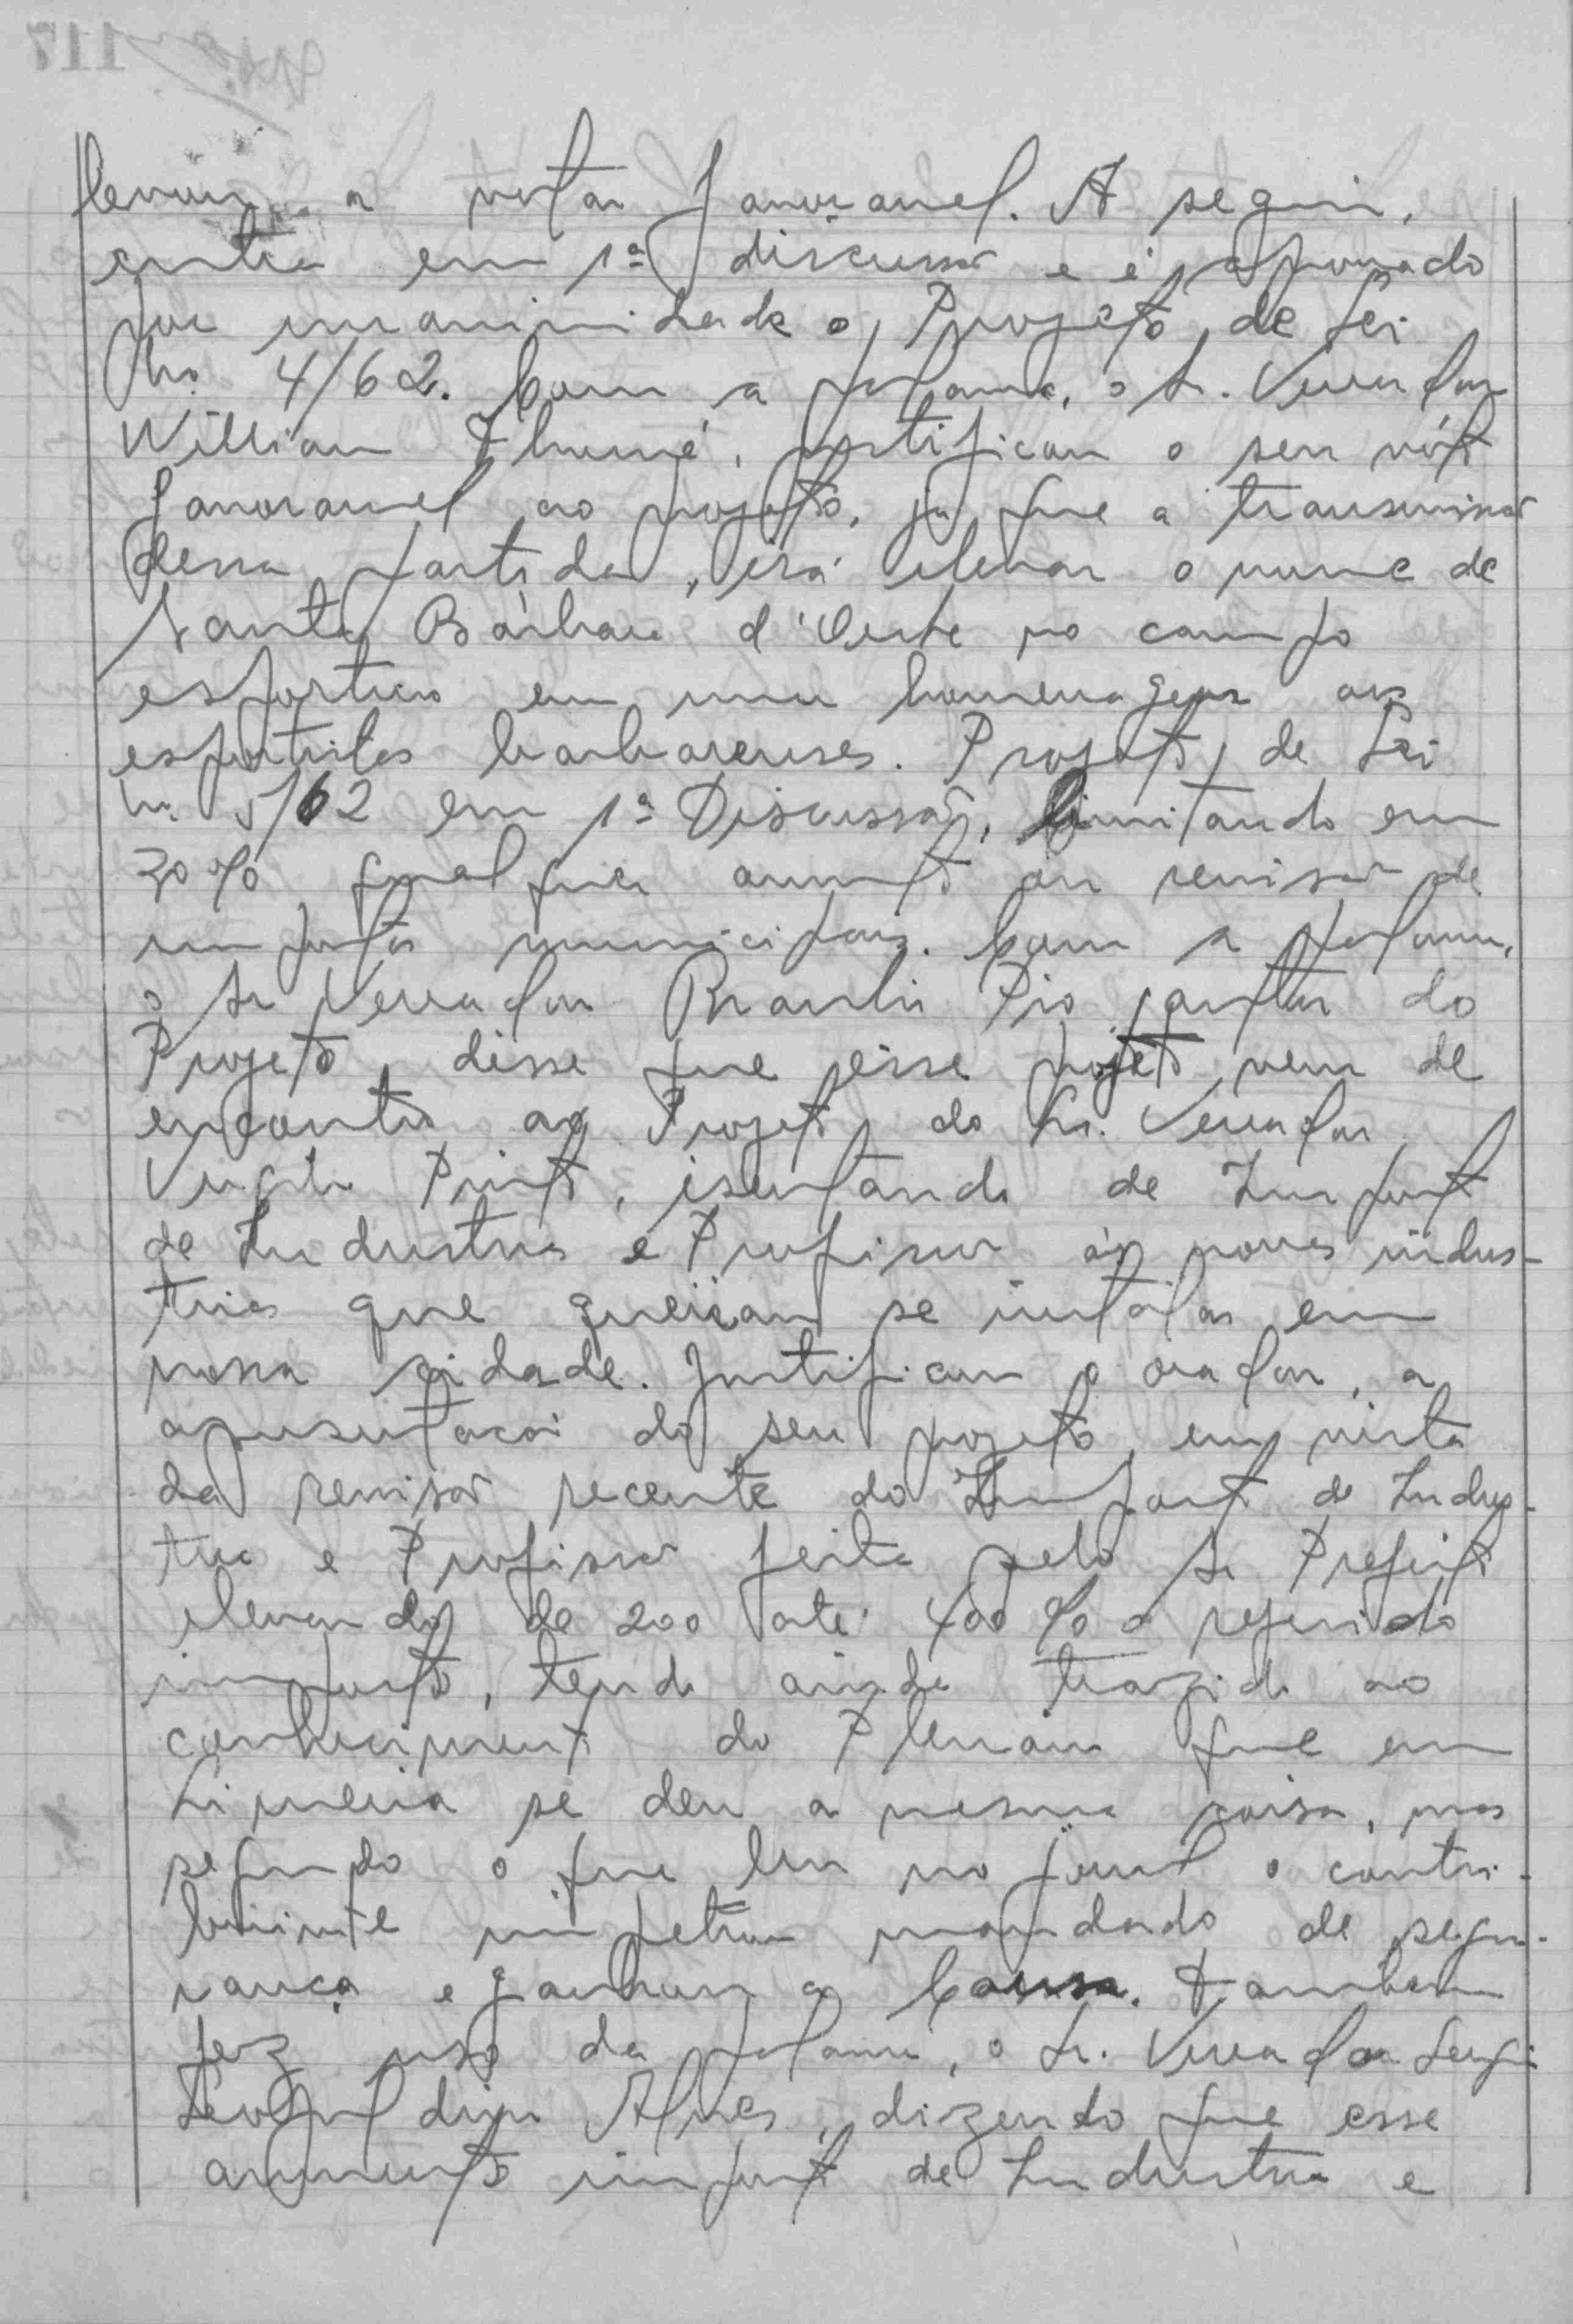 levou a votar favoravel. A seguir,
entra em 1ª discussão e é aprovado
por unanimidade o Projeto de Lei
nº 4/62. Com a palavra, o Sr. Vereador
William Thumé, justificou o seu vóto
favoravel ao projeto, já que a transmissão
dessa partida, irá elevar o nome de
Santa Bárbara d'Oeste no campo
esportivo em uma homenagem aos
esportistas barbarenses. Projeto de Lei
nº 5/62 em 1ª Discussão, limitando em
30% qualquer aumento ou revisão de
impostos municipais. Com a palavra,
o Sr Vereador Braulio Pio, autor do
Projeto, disse que êsse projeto vem de
encontro ao Projeto do Sr. Vereador
Virgilio Pinto, isentando de Imposto
de Industrias e Profissão às novas indus-
trias que queiram se instalar em
nossa cidade. Justificou o orador, a
apresentação do seu projeto, em vista
da revisão recente do Imposto de Indus-
tria e Profissão feita pelo Sr Prefeito
elevando de 200 até 400% o referido
imposto, tendo ainda trazido ao
conhecimento do Plenário que em
Limeira se deu a mesma coisa, mas
segundo o que leu no jornal o contri-
buinte impetrou mandado de segu-
rança e ganhou a Causa. Também
fez uso da palavra, o Sr. Vereador Sergio
Leopoldino Alves, dizendo que esse
aumento imposto de Industria e